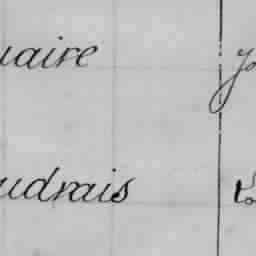 uaire
udrais